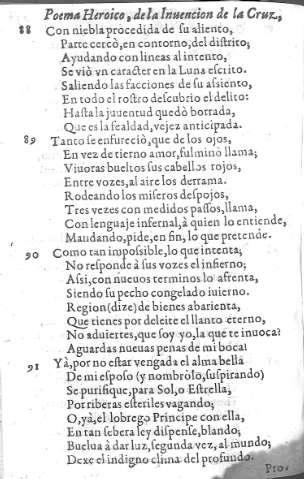 Poema Heroico, de la Inuencion de la Cruz,
88 Con niebla procedida de su aliento,
Parte cercò, en contorno, del distrito;
Ayudando con lineas al intento,
Se viò vn caracter en la Luna escrito.
Saliendo las facciones de su assiento,
En todo el rostro descubrio el delito:
Hasta la juuentud quedò borrada,
Que es la fealdad, vejez anticipada.
89 Tanto se enfureciò, que de los ojos,
En vez de tierno amor, fulminò llama;
Viuoras bueltos sus cabellos rojos,
Entre vozes, al aire los derrama.
Rodeando los miseros despojos,
Tres vezes con medidos passos, llama,
Con lenguaje infernal, à quien lo entiende,
Mandando, pide, en fin, lo que pretende.
90 Como tan impossible, lo que intenta;
No responde à sus vozes el infierno;
Assi, con nueuos terminos lo afrenta,
Siendo su pecho congelado iuierno.
Region (dize) de bienes abarienta,
Que tienes por deleite el llanto eterno,
No aduiertes, que soy yo, la que te inuoca?
Aguardas nueuas penas de mi boca?
91 Yà, por no estar vengada el alma bella
De mi esposo (y nombròlo, suspirando)
Se purifique, para Sol, o Estrella,
Por riberas esteriles vagando;
O, yà, el lobrego Principe con ella,
En tan sebera ley dispense, blando;
Buelua à dar luz, segunda vez, al mundo;
Dexe el indigno clima del profundo.
Pro-